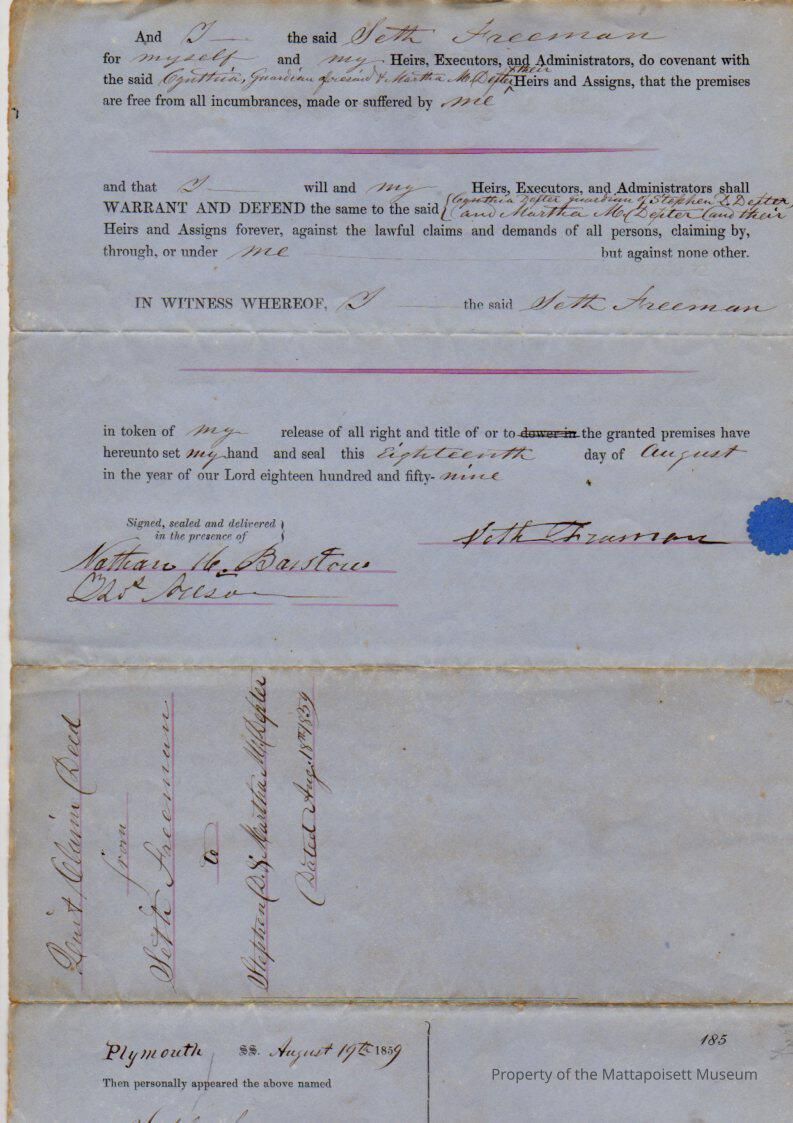 And I the said Seth Freeman
for myself and my Heirs, Executors, and Administrators, do covenant with
their
the said Cynthia, Guardian aforesaid & Martha M. Dexter Heirs and Assigns, that the premises
are free from all incumbrances, made or suffered by me
and that I will and my Heirs, Executors, and Administrators shall
Cynthia Dexter guardian of Stephen D. Dexter
WARRANT AND DEFEND the same to the said and Martha M. Dexter (and their
Heirs and Assigns forever, against the lawful claims and demands of all persons, claiming by,
through, or under me but against none other.
IN WITNESS WHEREOF, I the said Seth Freeman
in token of my release of all right and title of or to dower in the granted premises have
hereunto set my hand and seal this eighteenth day of August
in the year of our Lord eighteen hundred and fifty-nine
Signed, sealed and delivered
in the presence of
Seth Freeman
Nathan H. Barstow
Thos Nelson
Quit Claim Deed
from
Seth Freeman
to
Stephen D. & Martha M. Dexter
Dated Aug. 18th 1859
Plymouth SS. August 19th 1859
185
Then personally appeared the above named
Property of the Mattapoisett Museum